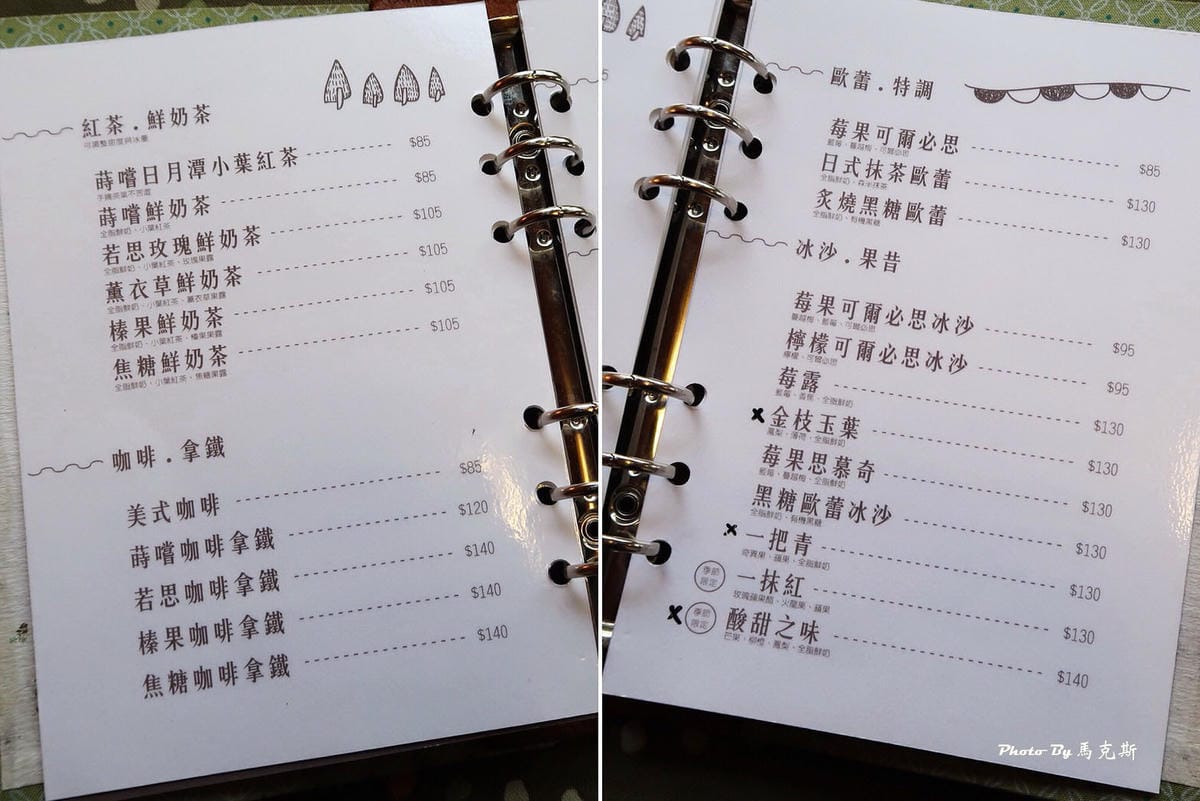 紅茶.鮮奶茶
可調整甜度與冰量
蒔嚐日月潭小葉紅茶 $85
手摘茶葉不苦澀
蒔嚐鮮奶茶 $85
全脂鮮奶、小葉紅茶
若思玫瑰鮮奶茶 $105
全脂鮮奶、小葉紅茶、玫瑰果露
薰衣草鮮奶茶 $105
全脂鮮奶、小葉紅茶、薰衣草果露
榛果鮮奶茶 $105
全脂鮮奶、小葉紅茶、榛果果露
焦糖鮮奶茶 $105
全脂鮮奶、小葉紅茶、焦糖果露
咖啡.拿鐵
美式咖啡 $85
蒔嚐咖啡拿鐵 $120
若思咖啡拿鐵 $140
榛果咖啡拿鐵 $140
焦糖咖啡拿鐵 $140
歐蕾.特調
莓果可爾必思 $85
藍莓、蔓越莓、可爾必思
日式抹茶歐蕾 $130
全脂鮮奶、森半抹茶
炙燒黑糖歐蕾 $130
全脂鮮奶、有機黑糖
冰沙.果昔
莓果可爾必思冰沙 $95
蔓越莓、藍莓、可爾必思
檸檬可爾必思冰沙 $95
檸檬、可爾必思
莓露 $130
藍莓、香蕉、全脂鮮奶
金枝玉葉 $130
鳳梨、薄荷、全脂鮮奶
莓果思慕奇 $130
藍莓、蔓越莓、全脂鮮奶
黑糖歐蕾冰沙 $130
全脂鮮奶、有機黑糖
一把青 $130
奇異果、蘋果、全脂鮮奶
季節限定 一抹紅 $130
玫瑰蘋果醋、火龍果、蘋果
季節限定 酸甜之味 $140
芒果、柳橙、鳳梨、全脂鮮奶
Photo By 馬克斯